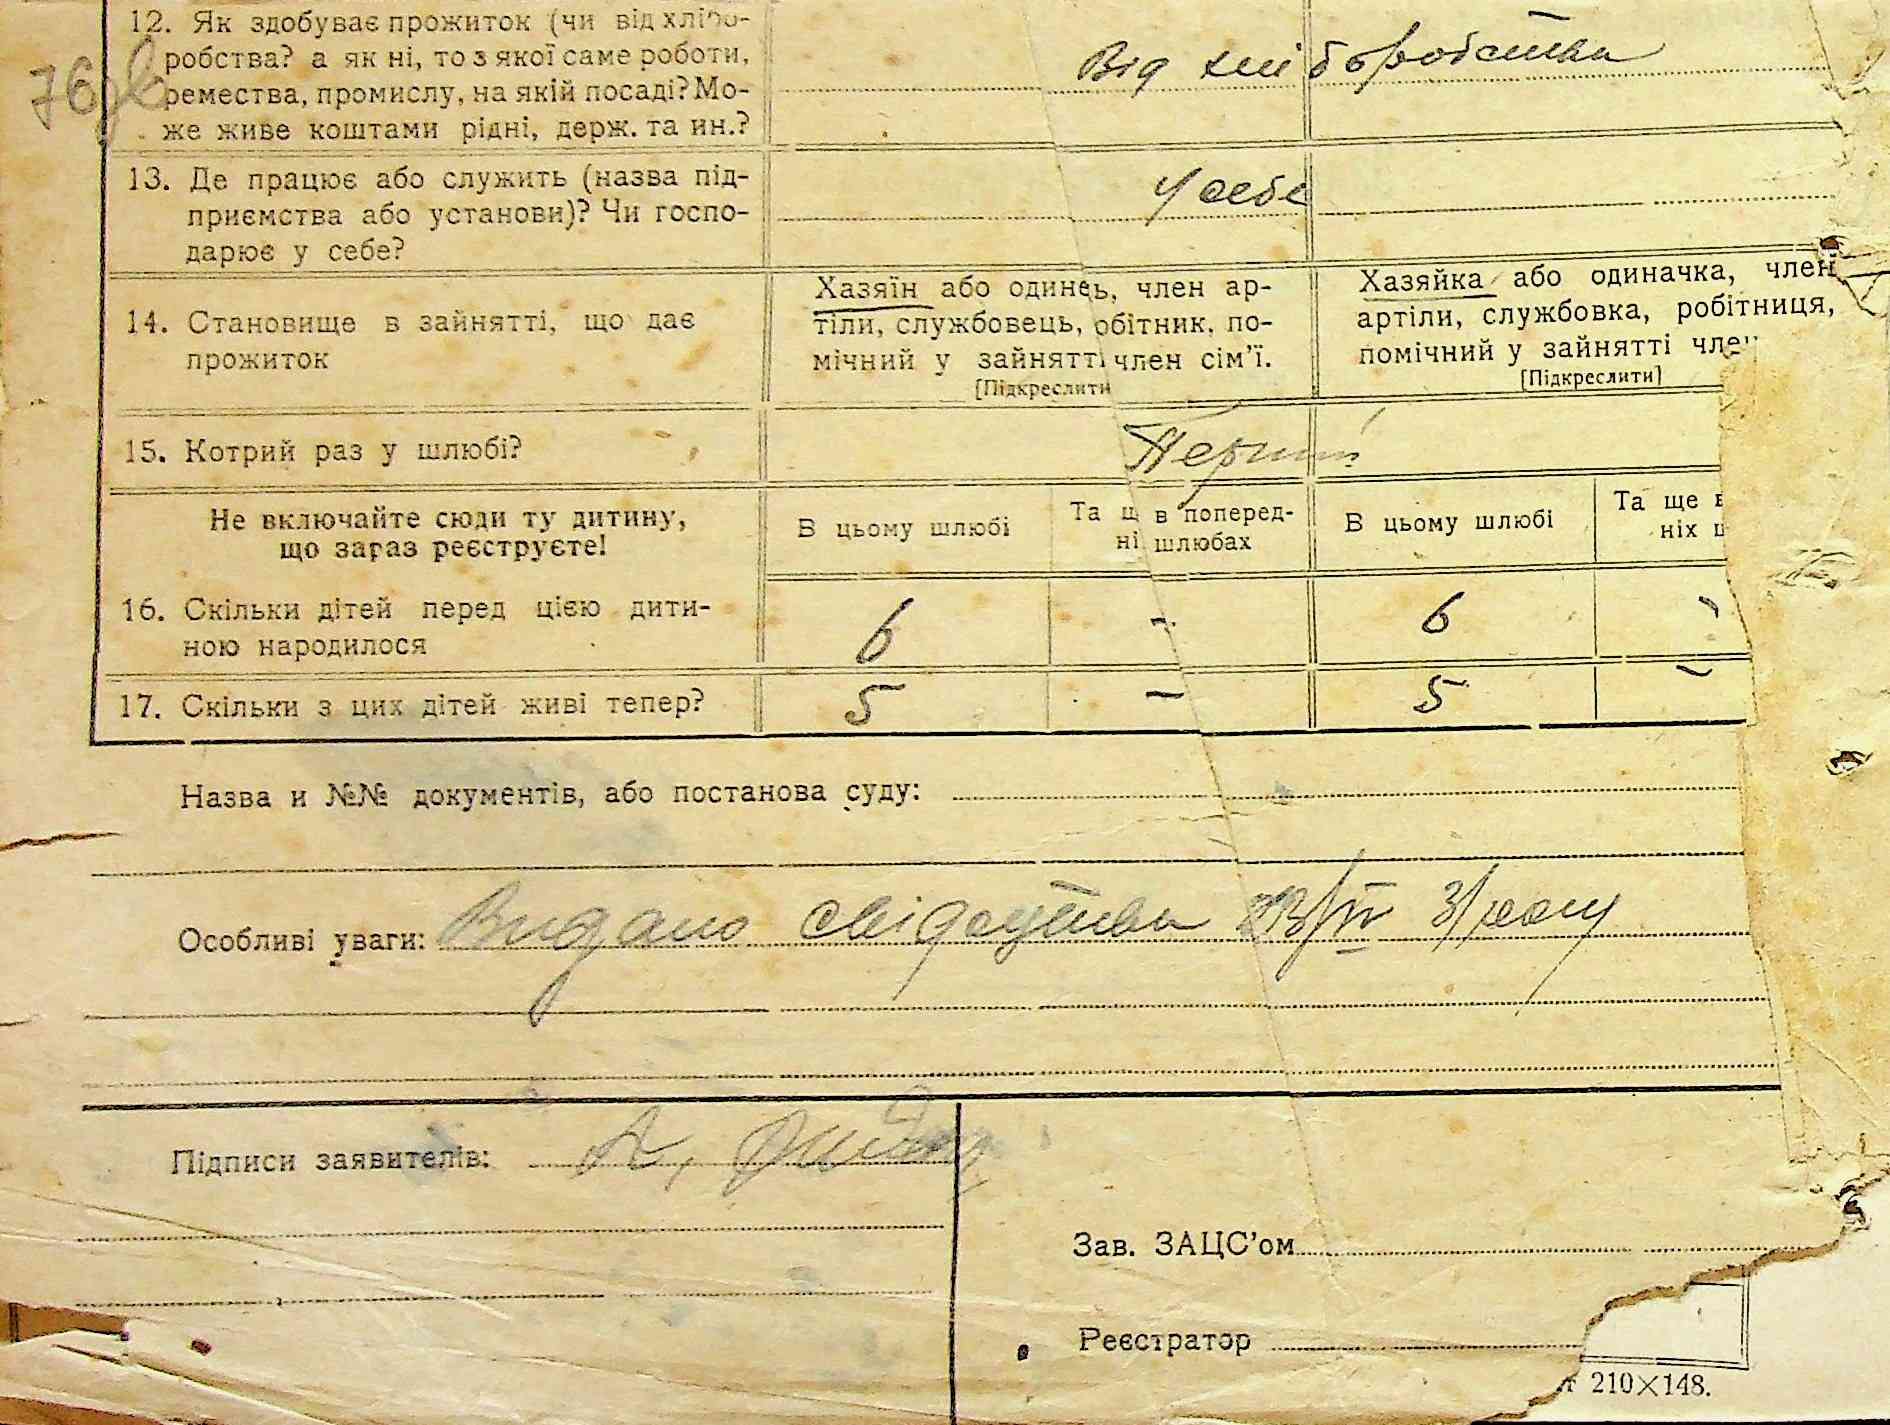 12. Як здобуває прожиток (чи від хлібо-
робства? а як ні, то з якої саме роботи,
ремества, промислу, на якій посаді? Мо-
же живе коштами рідні, держ. та ин.?
Від хліборобства
76
13. Де працює або служить (назва під-
приємства або установи)? Чи госпо-
дарює у себе?
У себе
14. Становище в зайнятті, що дає
прожиток
Хазяїн або одинець, член ар-
тіли, службовець, обітник, по-
мічний у зайнятті член сім'ї.
[Підкреслити
Хазяйка або одиначка, член
артіли, службовка, робітниця,
помічний у зайнятті член
[Підкреслити]
15. Котрий раз у шлюбі?
Перший
Не включайте сюди ту дитину,
що зараз реєструєте!
В цьому шлюбі
Та щ в поперед-
ні шлюбах
В цьому шлюбі
Та ще в
ніх ш
16. Скільки дітей перед цією дити-
ною народилося
6 - 6 -
17. Скільки з цих дітей живі тепер?
5 - 5 -
Назва и №№ документів, або постанова суду:
Особливі уваги: Видано свідоцтва 23/IV 31 року
Підписи заявителів: А.
Зав. ЗАЦС'ом
Реєстратор
т 210×148.